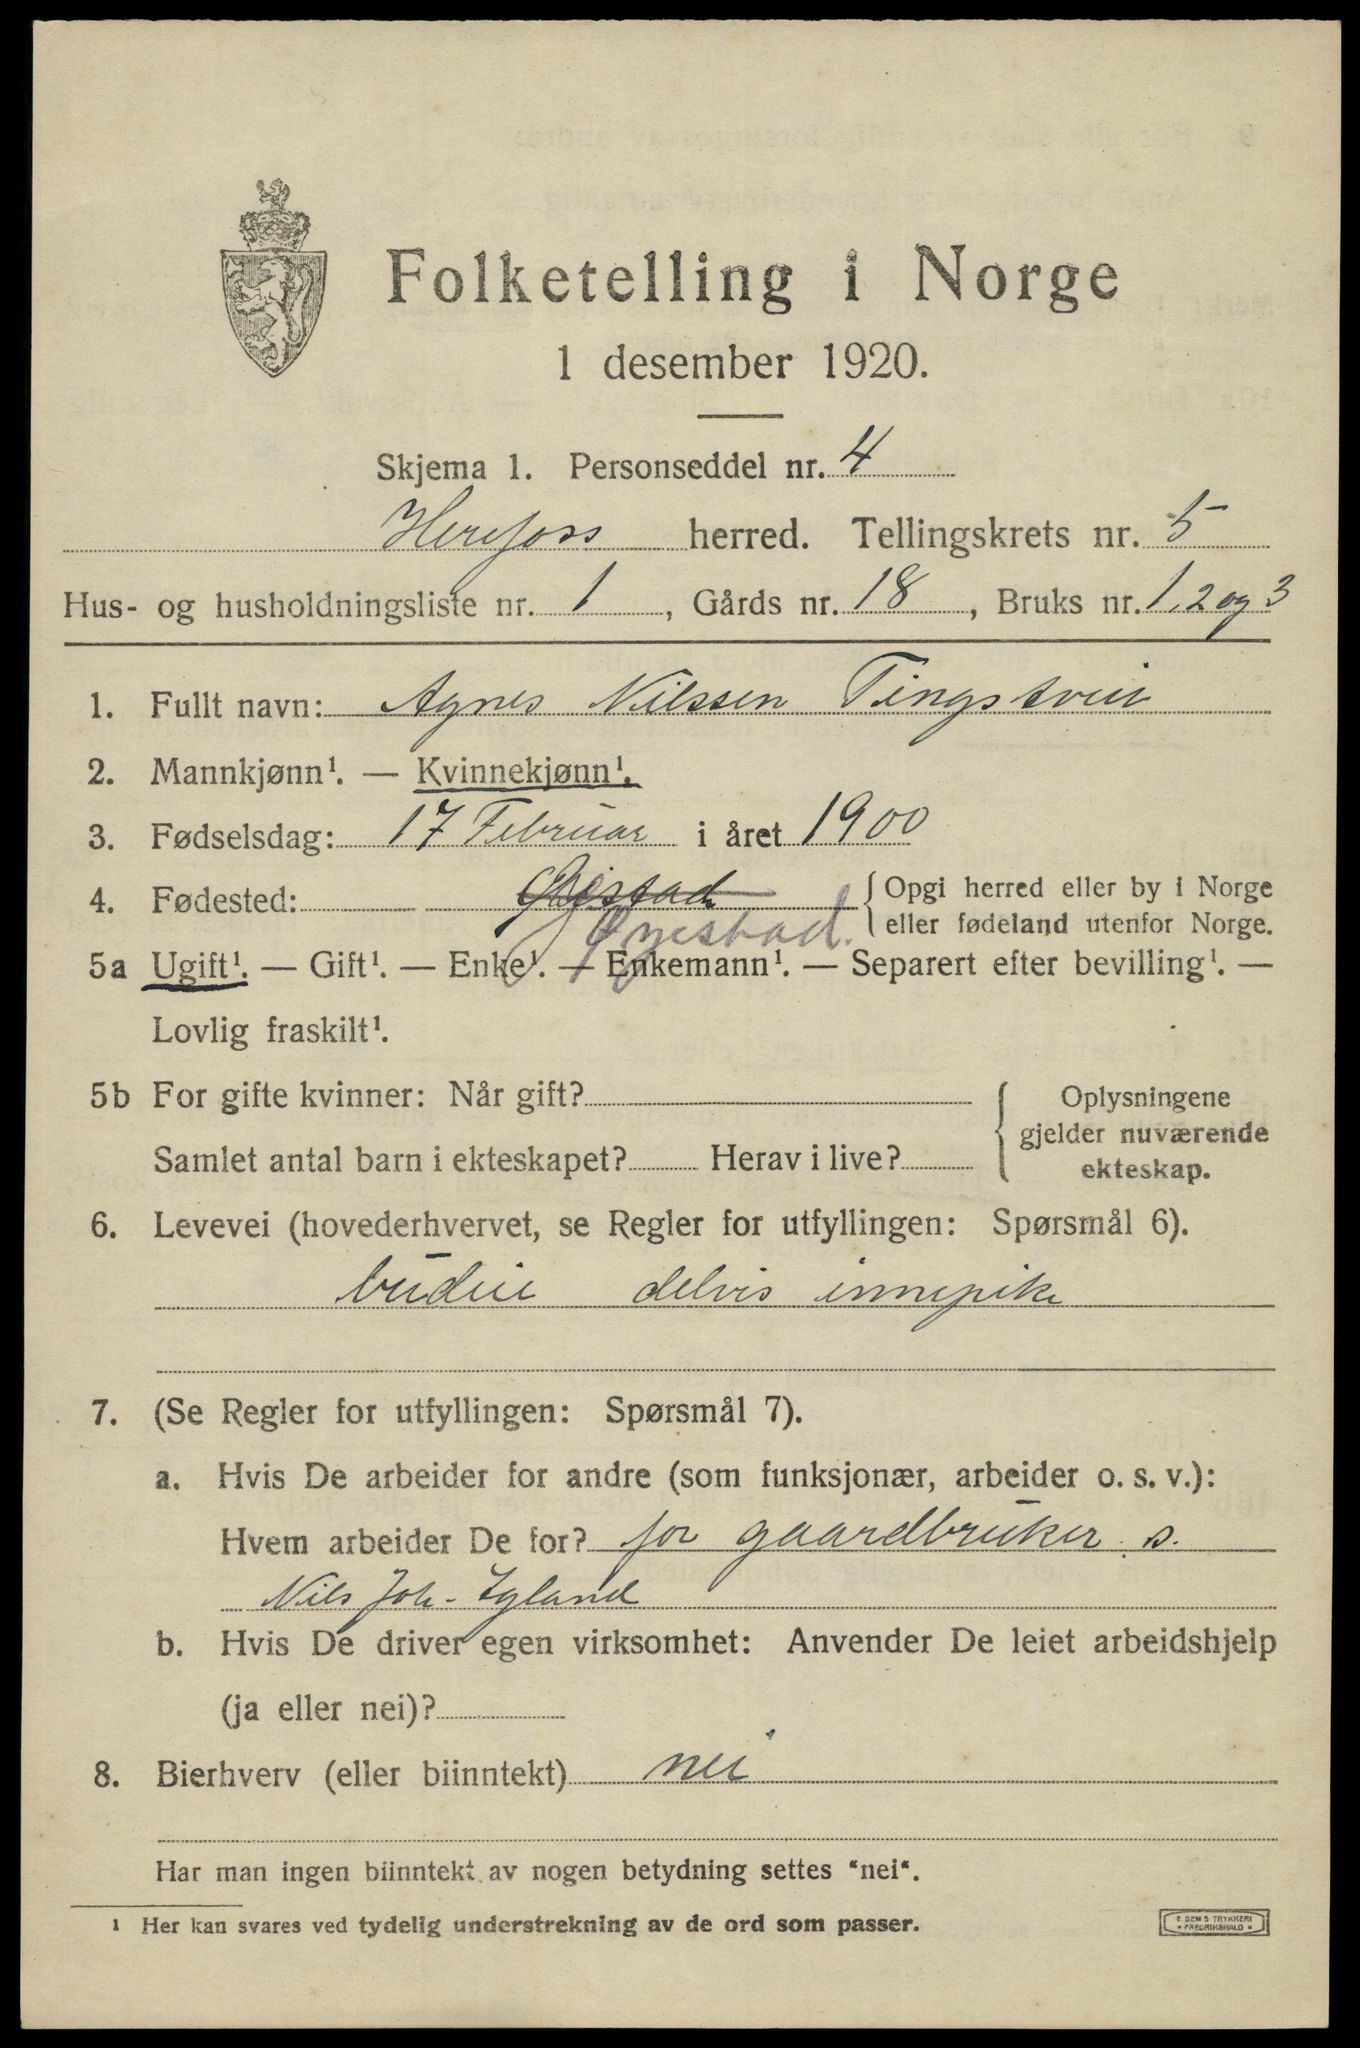 Folketelling i Norge
1 desember 1920.
Skjema 1. Personseddel nr. 4
Herefoss herred. Tellingskrets nr. 5
Hus- og husholdningsliste nr. 1, Gårds nr. 18, Bruks nr. 1, 2 og 3
1. Fullt navn: Agnes Nilssen Tingstveit
2. Mannkjønn¹. — Kvinnekjønn¹.
3. Fødselsdag: 17 Februar i året 1900
4. Fødested: Opgi herred eller by i Norge
eller fødeland utenfor Norge.
Øyestad.
5a Ugift¹. — Gift¹. — Enke¹. — Enkemann¹. — Separert efter bevilling¹. —
Lovlig fraskilt¹.
5b For gifte kvinner: Når gift?
Samlet antal barn i ekteskapet? Herav i live?
Oplysningene
gjelder nuværende
ekteskap.
6. Levevei (hovederhvervet, se Regler for utfyllingen: Spørsmål 6).
budeie delvis innepike
7. (Se Regler for utfyllingen: Spørsmål 7).
a. Hvis De arbeider for andre (som funksjonær, arbeider o. s. v.):
Hvem arbeider De for? for gaardbruker s.
Nils Joh. Igland
b. Hvis De driver egen virksomhet: Anvender De leiet arbeidshjelp
(ja eller nei)?
8. Bierhverv (eller biinntekt) nei
Har man ingen biinntekt av nogen betydning settes "nei".
¹ Her kan svares ved tydelig understrekning av de ord som passer.
E. SEM'S TRYKKERI
• FREDRIKSHALD •